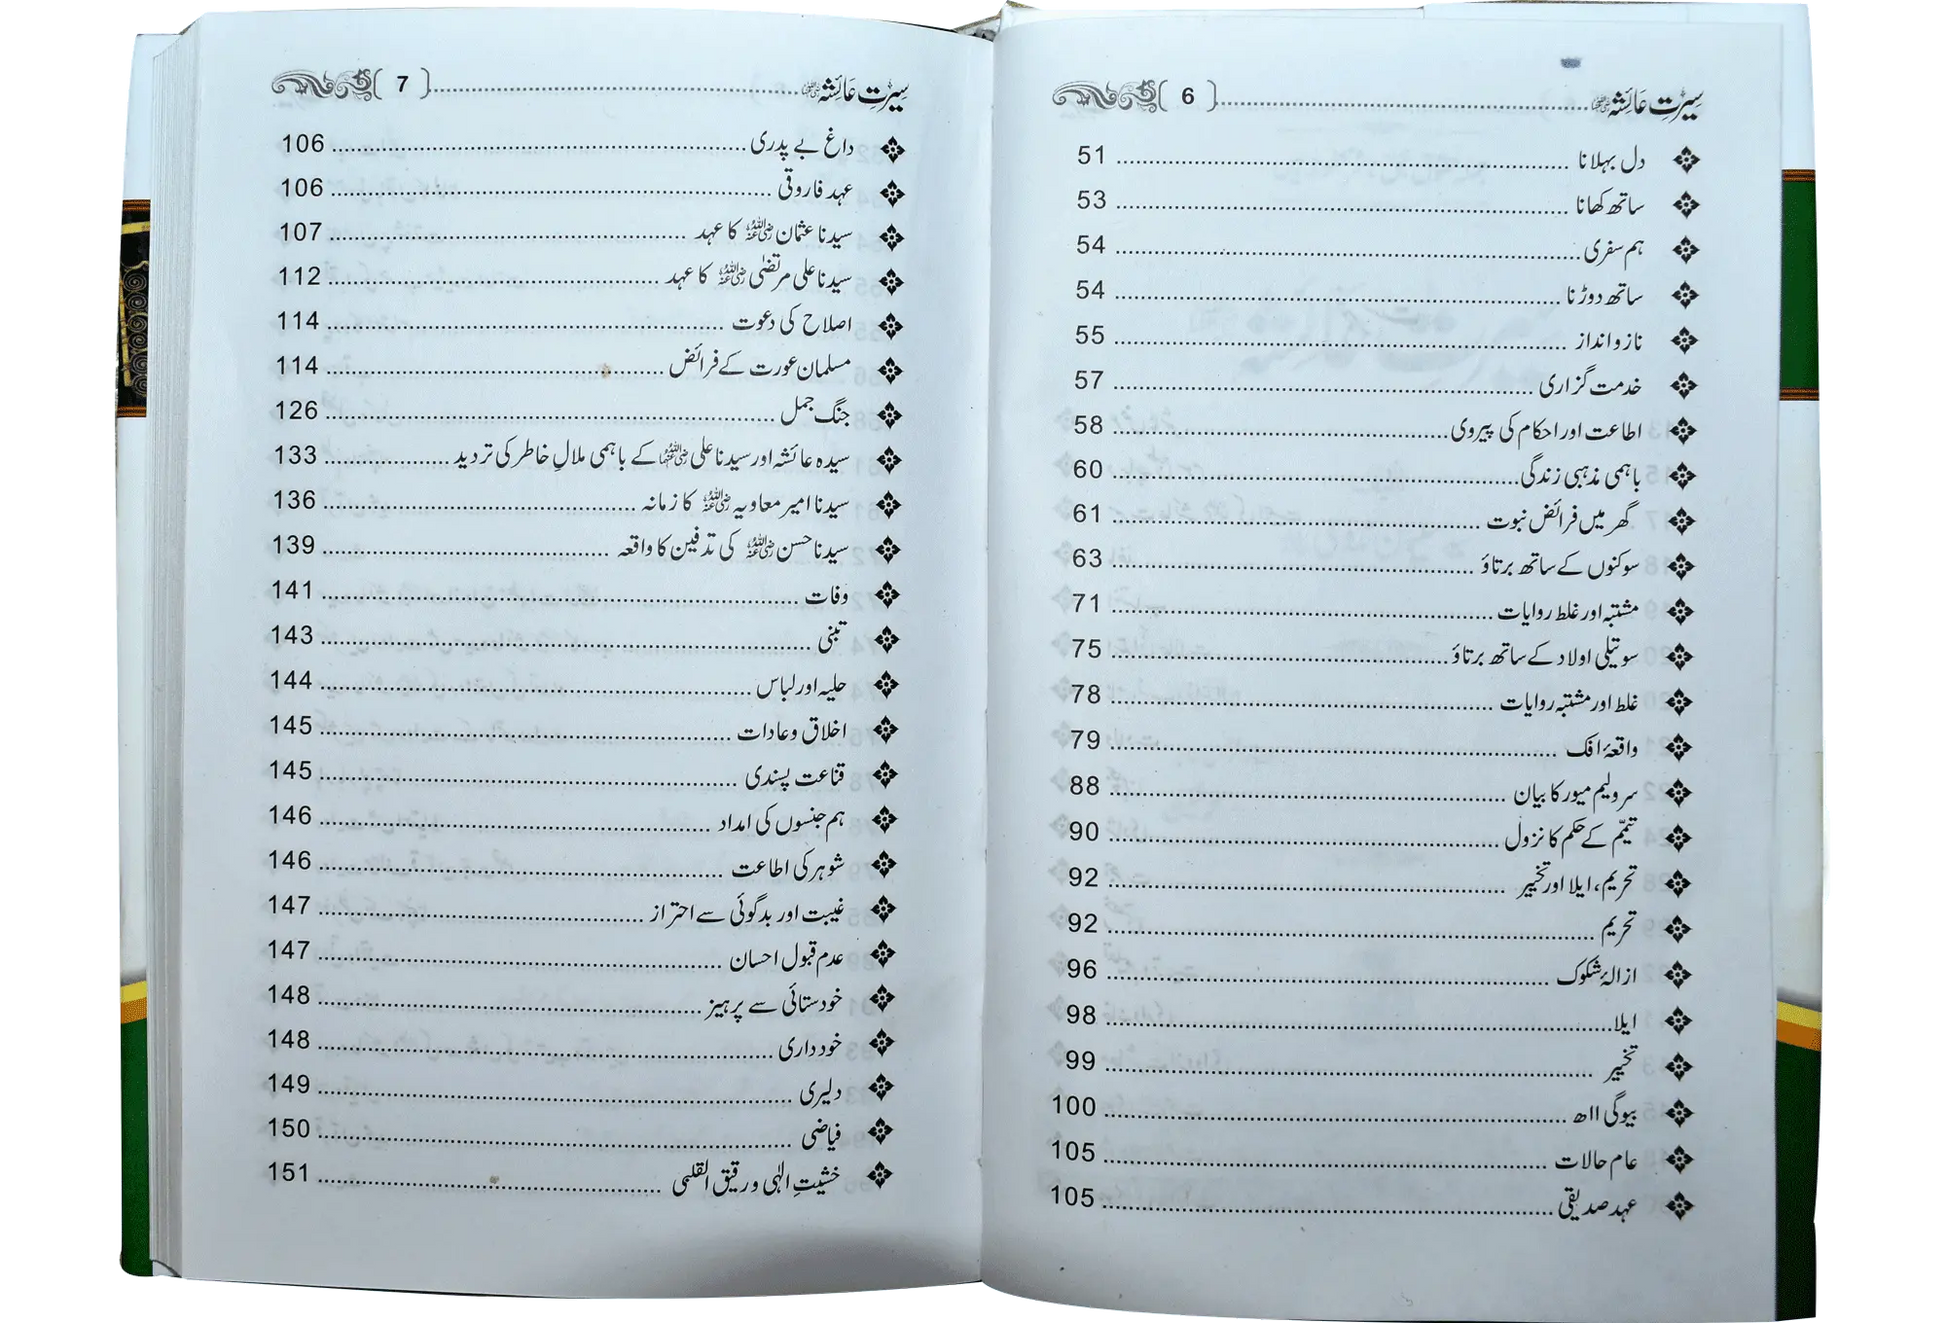 سیرتِ عائشہؓ ........ { 6 }
دل بہلانا ........ 51
ساتھ کھانا ........ 53
ہم سفری ........ 54
ساتھ دوڑنا ........ 54
ناز و انداز ........ 55
خدمت گزاری ........ 57
اطاعت اور احکام کی پیروی ........ 58
باہمی مذہبی زندگی ........ 60
گھر میں فرائض نبوت ........ 61
سوکنوں کے ساتھ برتاؤ ........ 63
مشتبہ اور غلط روایات ........ 71
سوتیلی اولاد کے ساتھ برتاؤ ........ 75
غلط اور مشتبہ روایات ........ 78
واقعۂ افک ........ 79
سر ولیم میور کا بیان ........ 88
تیمّم کے حکم کا نزول ........ 90
تحریم، ایلا اور تخییر ........ 92
تحریم ........ 92
ازالۂ شکوک ........ 96
ایلا ........ 98
تخییر ........ 99
بیوگی ۱۱ھ ........ 100
عام حالات ........ 105
عہد صدیقی ........ 105
سیرتِ عائشہؓ ........ { 7 }
داغ بے پدری ........ 106
عہد فاروقی ........ 106
سیدنا عثمان رضی اللہ عنہ کا عہد ........ 107
سیدنا علی مرتضیٰ رضی اللہ عنہ کا عہد ........ 112
اصلاح کی دعوت ........ 114
مسلمان عورت کے فرائض ........ 114
جنگ جمل ........ 126
سیدہ عائشہ اور سیدنا علی رضی اللہ عنہما کے باہمی ملالِ خاطر کی تردید ........ 133
سیدنا امیر معاویہ رضی اللہ عنہ کا زمانہ ........ 136
سیدنا حسن رضی اللہ عنہ کی تدفین کا واقعہ ........ 139
وفات ........ 141
تبنی ........ 143
حلیہ اور لباس ........ 144
اخلاق و عادات ........ 145
قناعت پسندی ........ 145
ہم جنسوں کی امداد ........ 146
شوہر کی اطاعت ........ 146
غیبت اور بدگوئی سے احتراز ........ 147
عدم قبول احسان ........ 147
خودستائی سے پرہیز ........ 148
خود داری ........ 148
دلیری ........ 149
فیاضی ........ 150
خشیتِ الٰہی و رقیق القلبی ........ 151